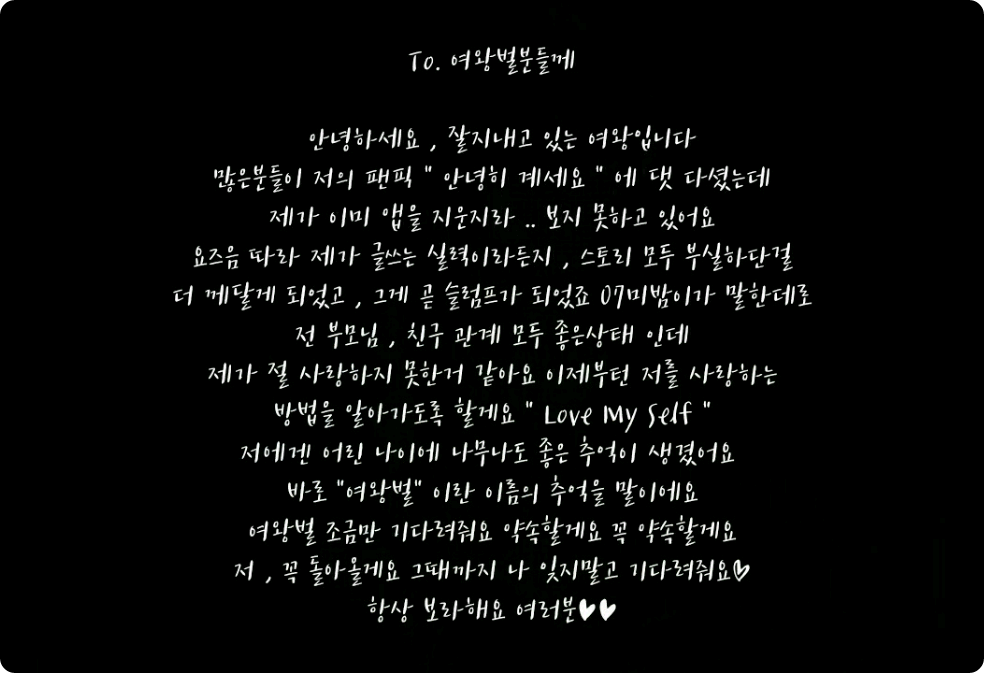 To. 여왕벌분들께
안녕하세요 , 잘지내고 있는 여왕입니다
많은분들이 저의 팬픽 " 안녕히 계세요 " 에 댓 다셨는데
제가 이미 앱을 지운지라 .. 보지 못하고 있어요
요즈음 따라 제가 글쓰는 실력이라든지 , 스토리 모두 부실하단걸
더 께달게 되었고 , 그게 곧 슬럼프가 되었죠 07미밤이가 말한데로
전 부모님 , 친구 관계 모두 좋은상태 인데
제가 절 사랑하지 못한거 같아요 이제부턴 저를 사랑하는
방법을 알아가도록 할게요 " Love My Self "
저에겐 어린 나이에 나무나도 좋은 추억이 생겼어요
바로 "여왕벌" 이란 이름의 추억을 말이에요
여왕벌 조금만 기다려줘요 약속할게요 꼭 약속할게요
저 , 꼭 돌아올게요 그때까지 나 잊지말고 기다려줘요♡
항상 보라해요 여러분♥♥